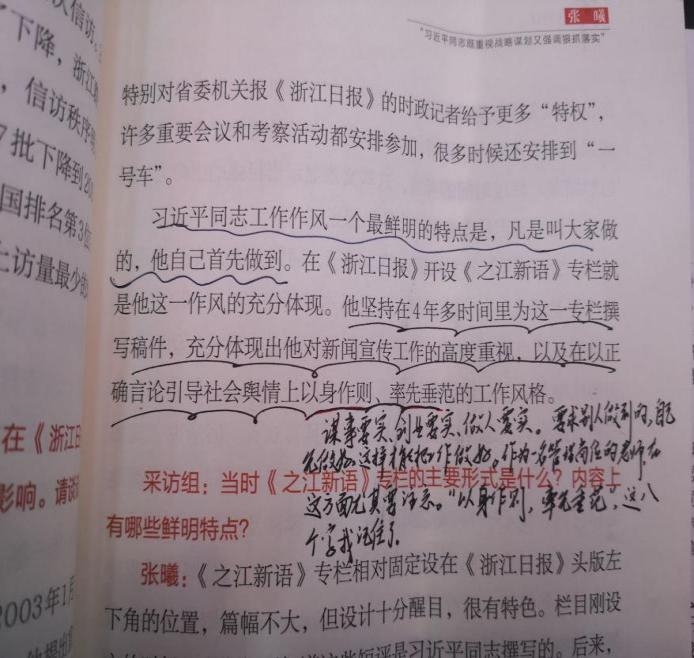 次信访。
下降，浙江
，信访秩序
7批下降到20
国排名第3位
上访量最少的
在《浙江日
影响。请谈
2003年1月
张曦
“习近平同志既重视战略谋划又强调狠抓落实”
特别对省委机关报《浙江日报》的时政记者给予更多“特权”，
许多重要会议和考察活动都安排参加，很多时候还安排到“一
号车”。
习近平同志工作作风一个最鲜明的特点是，凡是叫大家做
的，他自己首先做到。在《浙江日报》开设《之江新语》专栏就
是他这一作风的充分体现。他坚持在4年多时间里为这一专栏撰
写稿件，充分体现出他对新闻宣传工作的高度重视，以及在以正
确言论引导社会舆情上以身作则、率先垂范的工作风格。
谋事要实、创业要实、做人要实。要求别人做到的，自己
先做好，这样才能把工作做好。作为一名管理岗位的老师，在
这方面尤其要注意。“以身作则，率先垂范”，这八
个字我记住了
采访组：当时《之江新语》专栏的主要形式是什么？内容上
有哪些鲜明特点？
张曦：《之江新语》专栏相对固定设在《浙江日报》头版左
下角的位置，篇幅不大，但设计十分醒目，很有特色。栏目刚设
这些短评是习近平同志撰写的。后来，